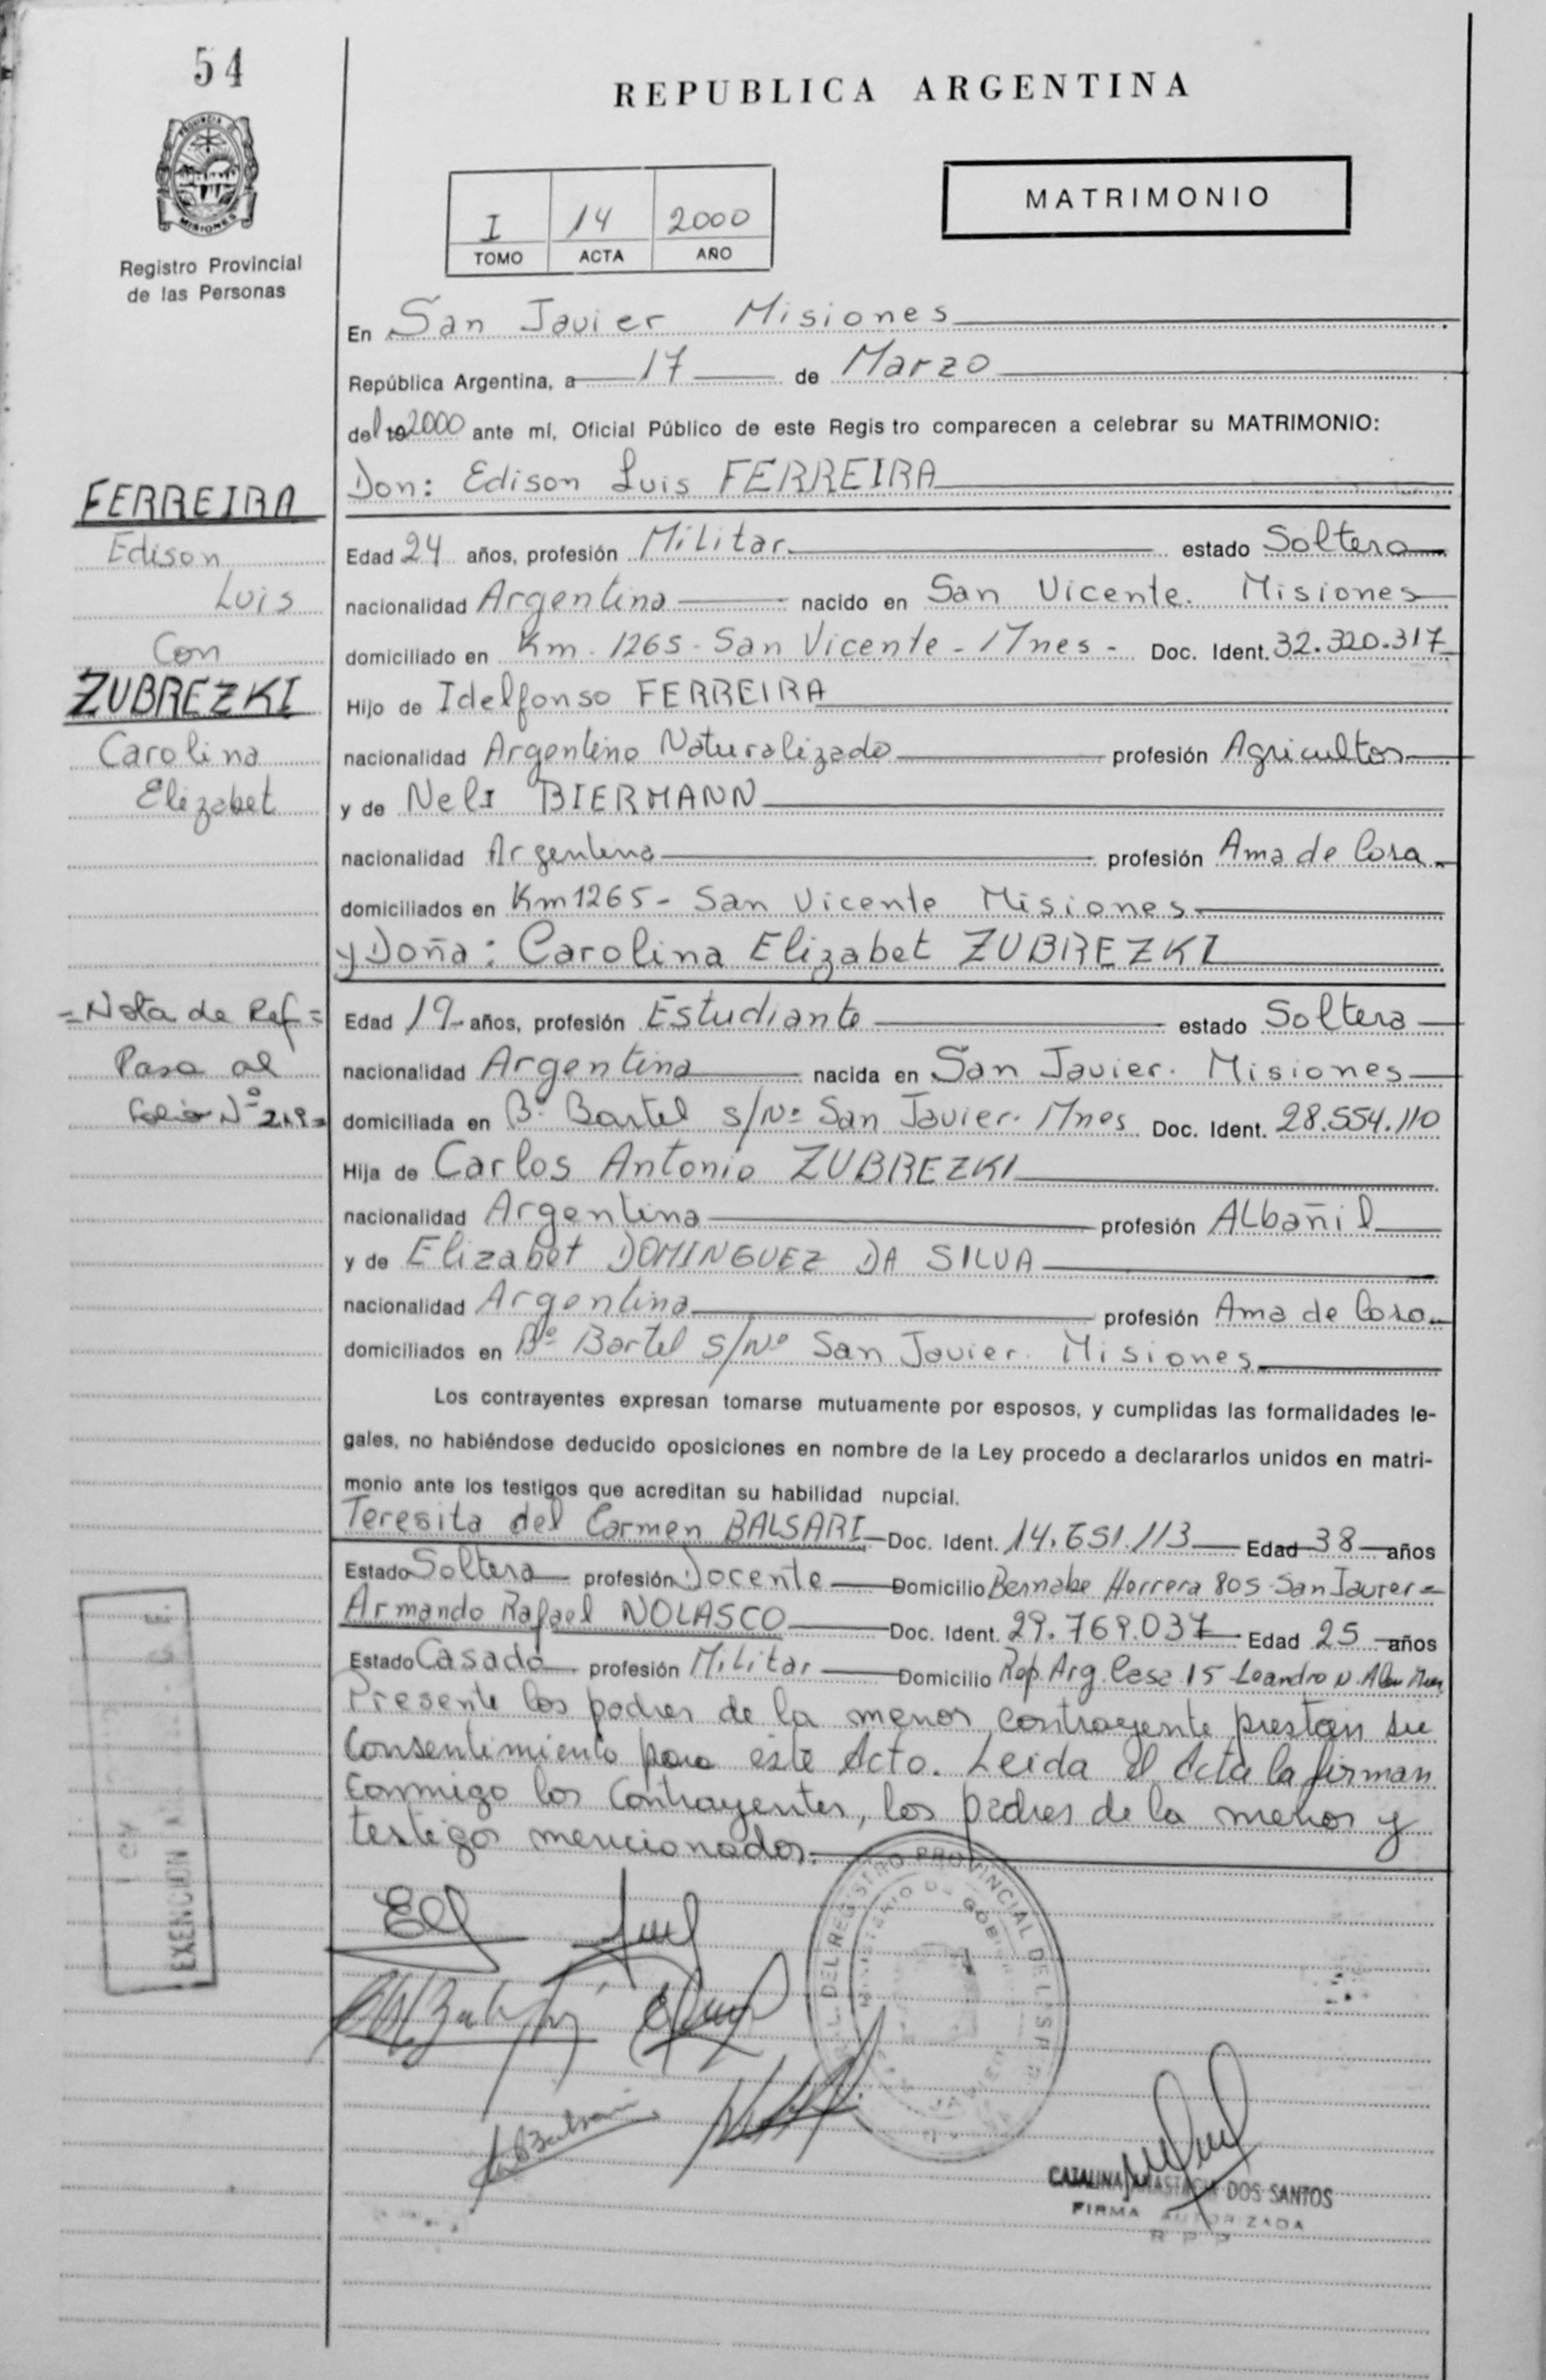 54
REPUBLICA ARGENTINA
PROVINCIA DE
MISIONES
Registro Provincial
de las Personas
MATRIMONIO
I 14 2000
TOMO ACTA AÑO
En San Javier Misiones
República Argentina, a 17 de Marzo
del 19 2000 ante mí, Oficial Público de este Regis tro comparecen a celebrar su MATRIMONIO:
Don: Edison Luis FERREIRA
Edad 24 años, profesión Militar estado Soltero
nacionalidad Argentina nacido en San Vicente. Misiones
domiciliado en Km. 1265 - San Vicente - Mnes - Doc. Ident. 32.320.317
Hijo de Idelfonso FERREIRA
nacionalidad Argentino Naturalizado profesión Agricultor
y de Neli BIERMANN
nacionalidad Argentina profesión Ama de Casa
domiciliados en Km 1265 - San Vicente Misiones
y Doña: Carolina Elizabet ZUBREZKI
Edad 19 años, profesión Estudiante estado Soltera
nacionalidad Argentina nacida en San Javier. Misiones
domiciliada en Bº Bartel S/Nº San Javier. Mnes Doc. Ident. 28.554.110
Hija de Carlos Antonio ZUBREZKI
nacionalidad Argentina profesión Albañil
y de Elizabet DOMINGUEZ DA SILVA
nacionalidad Argentina profesión Ama de Casa
domiciliados en Bº Bartel S/Nº San Javier. Misiones
Los contrayentes expresan tomarse mutuamente por esposos, y cumplidas las formalidades le-
gales, no habiéndose deducido oposiciones en nombre de la Ley procedo a declararlos unidos en matri-
monio ante los testigos que acreditan su habilidad nupcial.
Teresita del Carmen BALSARI Doc. Ident. 14.651.113 Edad 38 años
Estado Soltera profesión Docente Domicilio Bernabe Herrera 805 San Javier
Armando Rafael NOLASCO Doc. Ident. 29.769.037 Edad 25 años
Estado Casado profesión Militar Domicilio Rep. Arg. Casa 15 Leandro N. Alem Mnes
Presente los padres de la menor contrayente prestan su
Consentimiento para este Acto. Leida el Acta la firman
conmigo los Contrayentes, los padres de la menor y
testigos mencionados.
FERREIRA
Edison
Luis
Con
ZUBREZKI
Carolina
Elizabet
= Nota de Ref =
Pasa al
folio Nº 219 =
EXENCION
DEL REGISTRO PROVINCIAL DE LAS
MINISTERIO DE GOBIERNO
CATALINA ANASTACIA DOS SANTOS
FIRMA AUTORIZADA
R P P